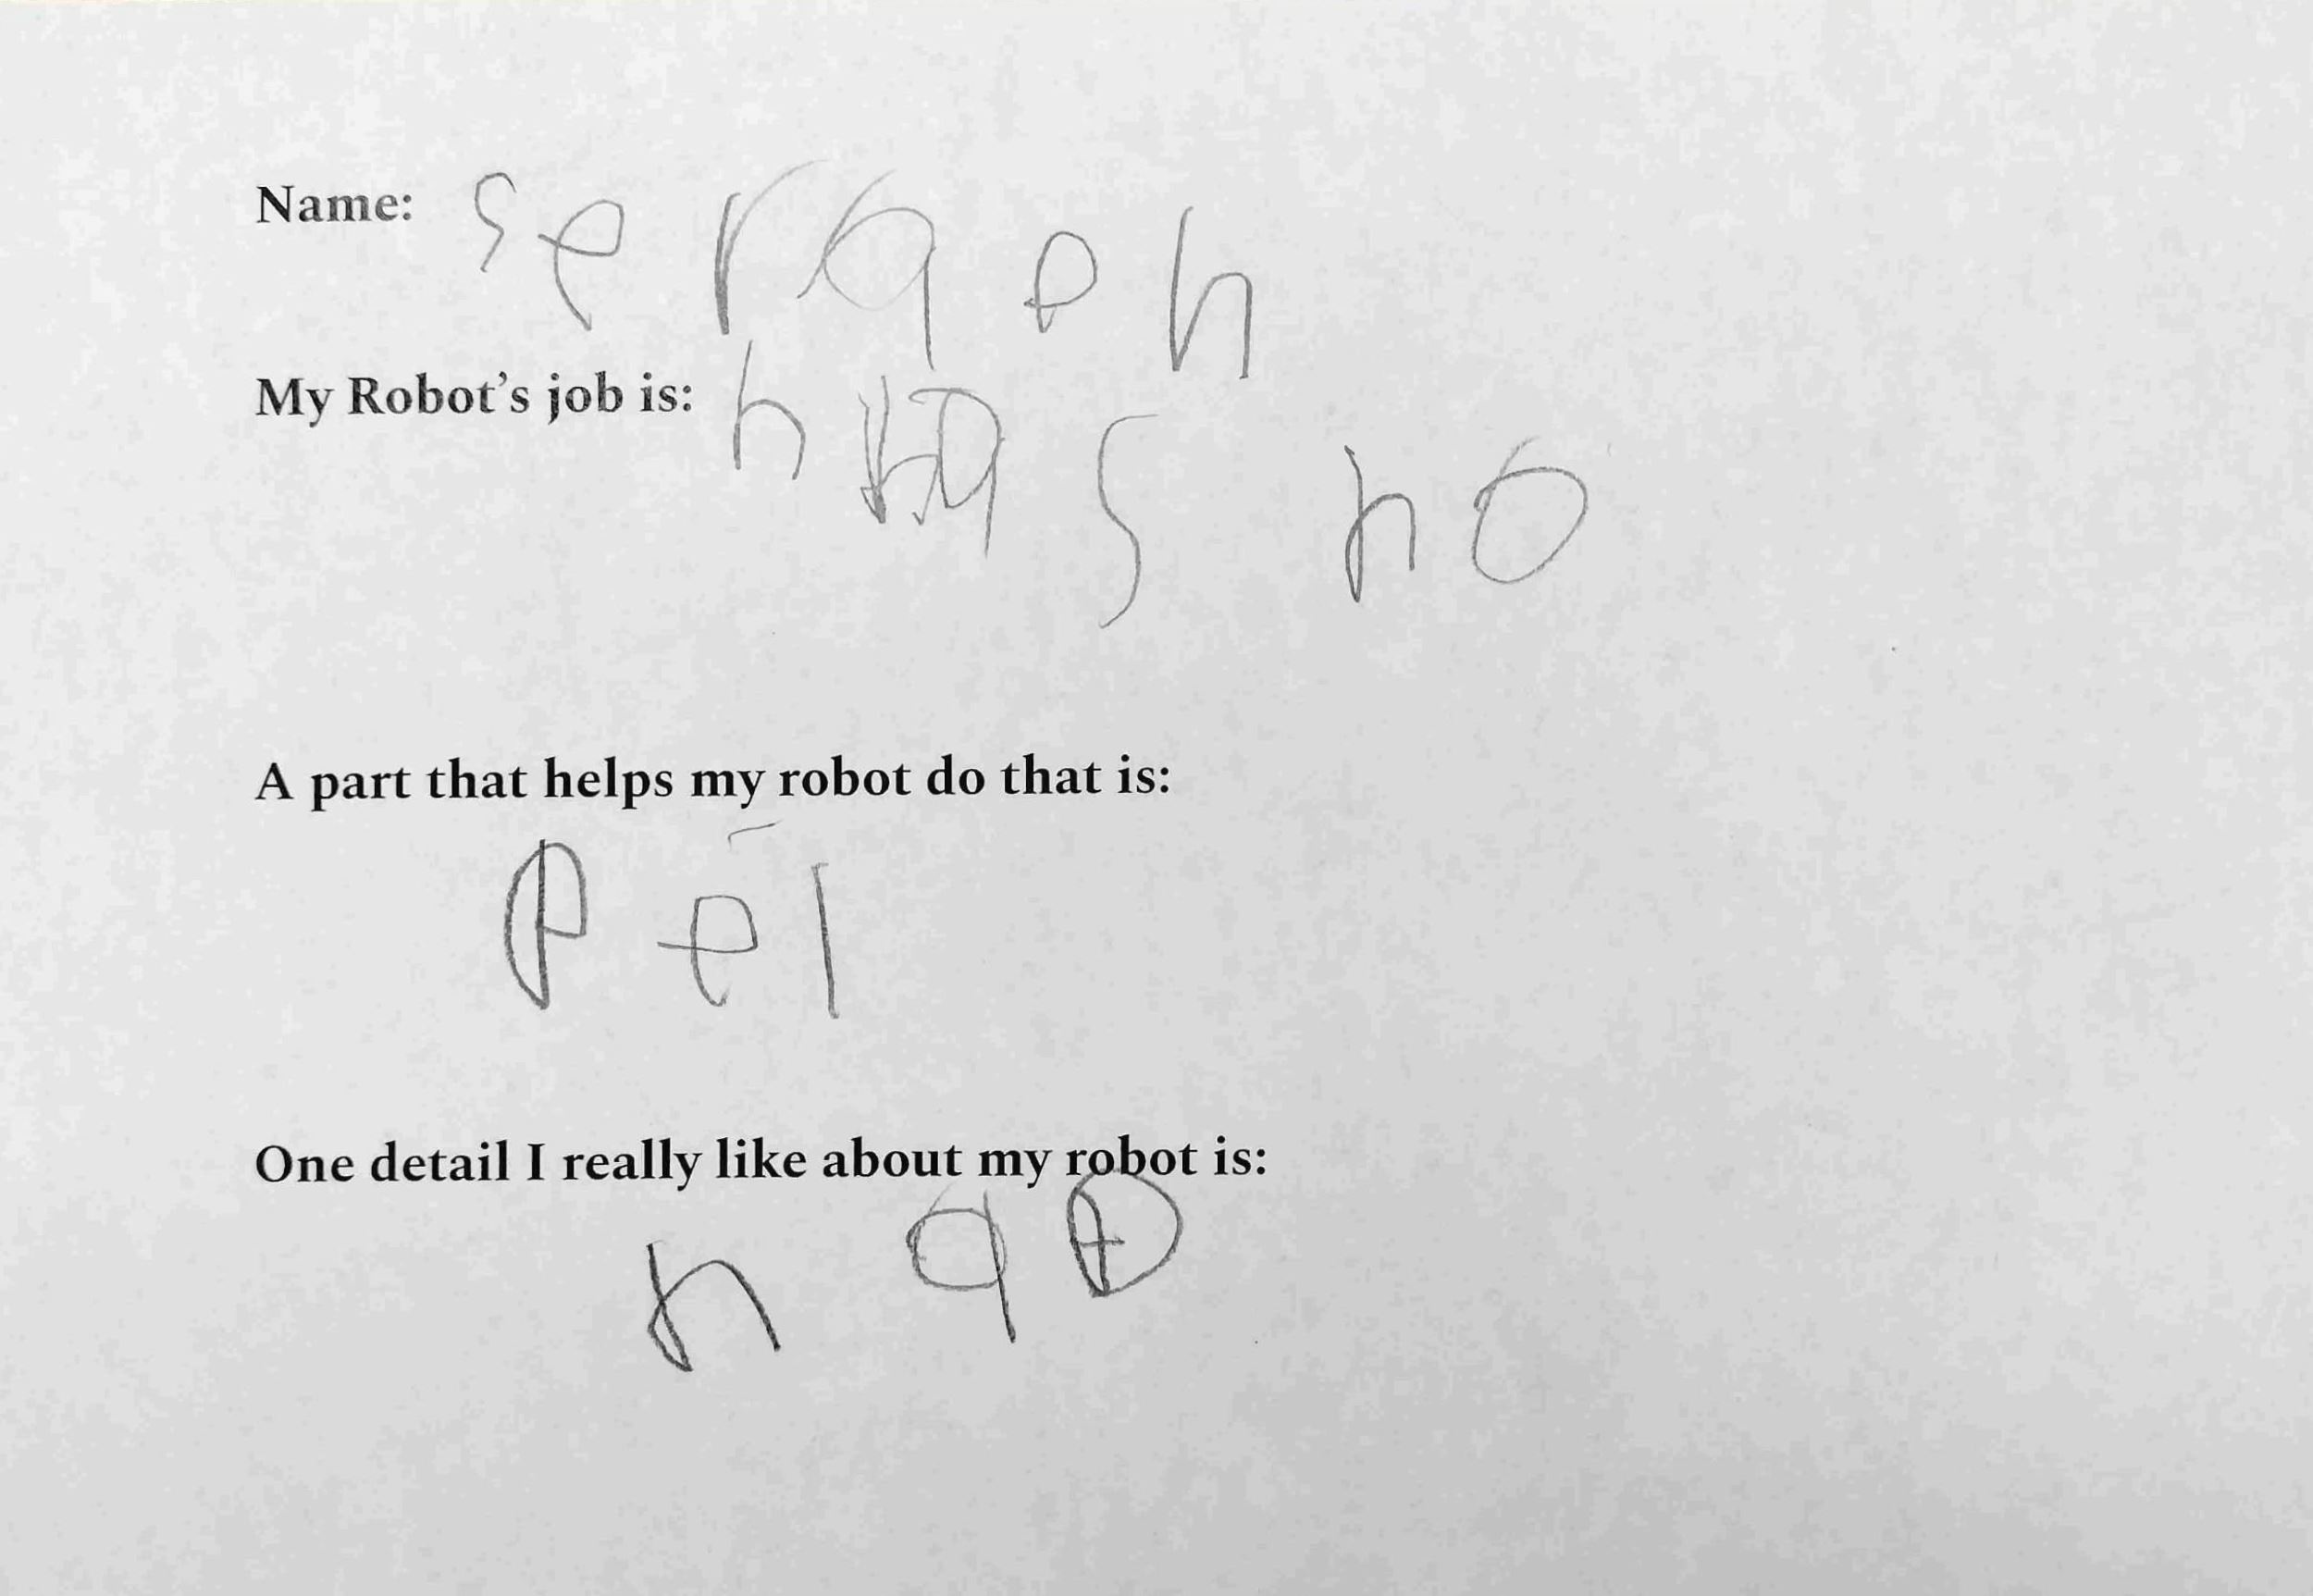 Name: seraeh
My Robot's job is: has no
A part that helps my robot do that is:
Pel
One detail I really like about my robot is: